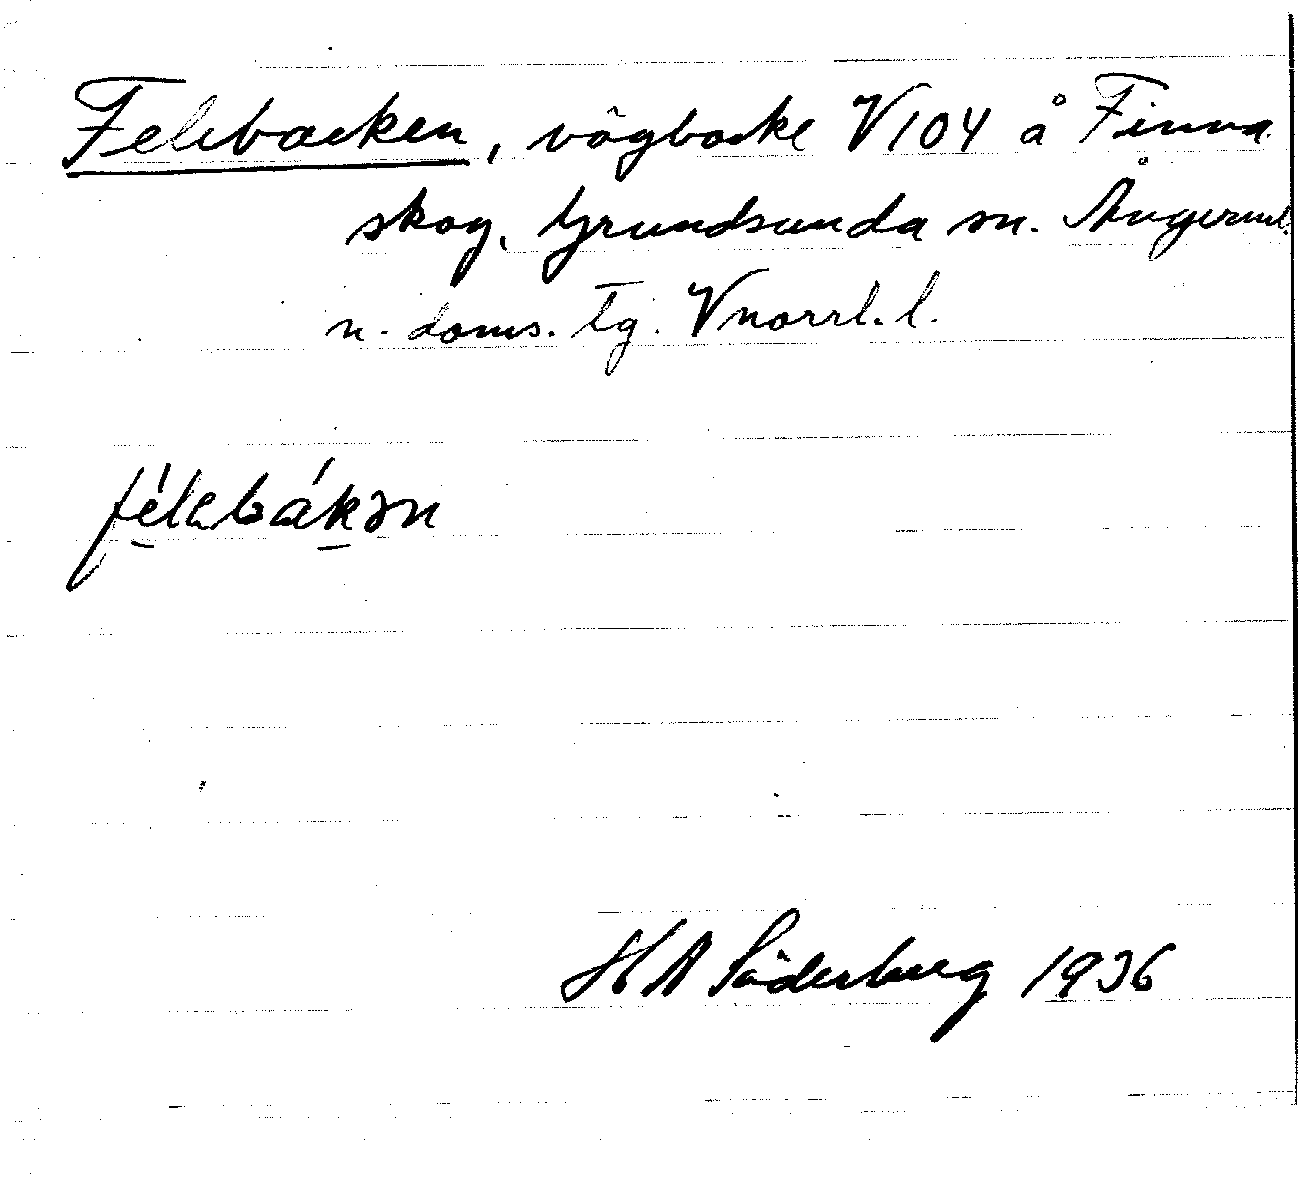 Felebacken, vägbacke V104 å Finna
skog, Grundsunda sn. Ångerml.
n. doms. tg. Vnorrl. l.
félebákən
H A Söderberg 1936